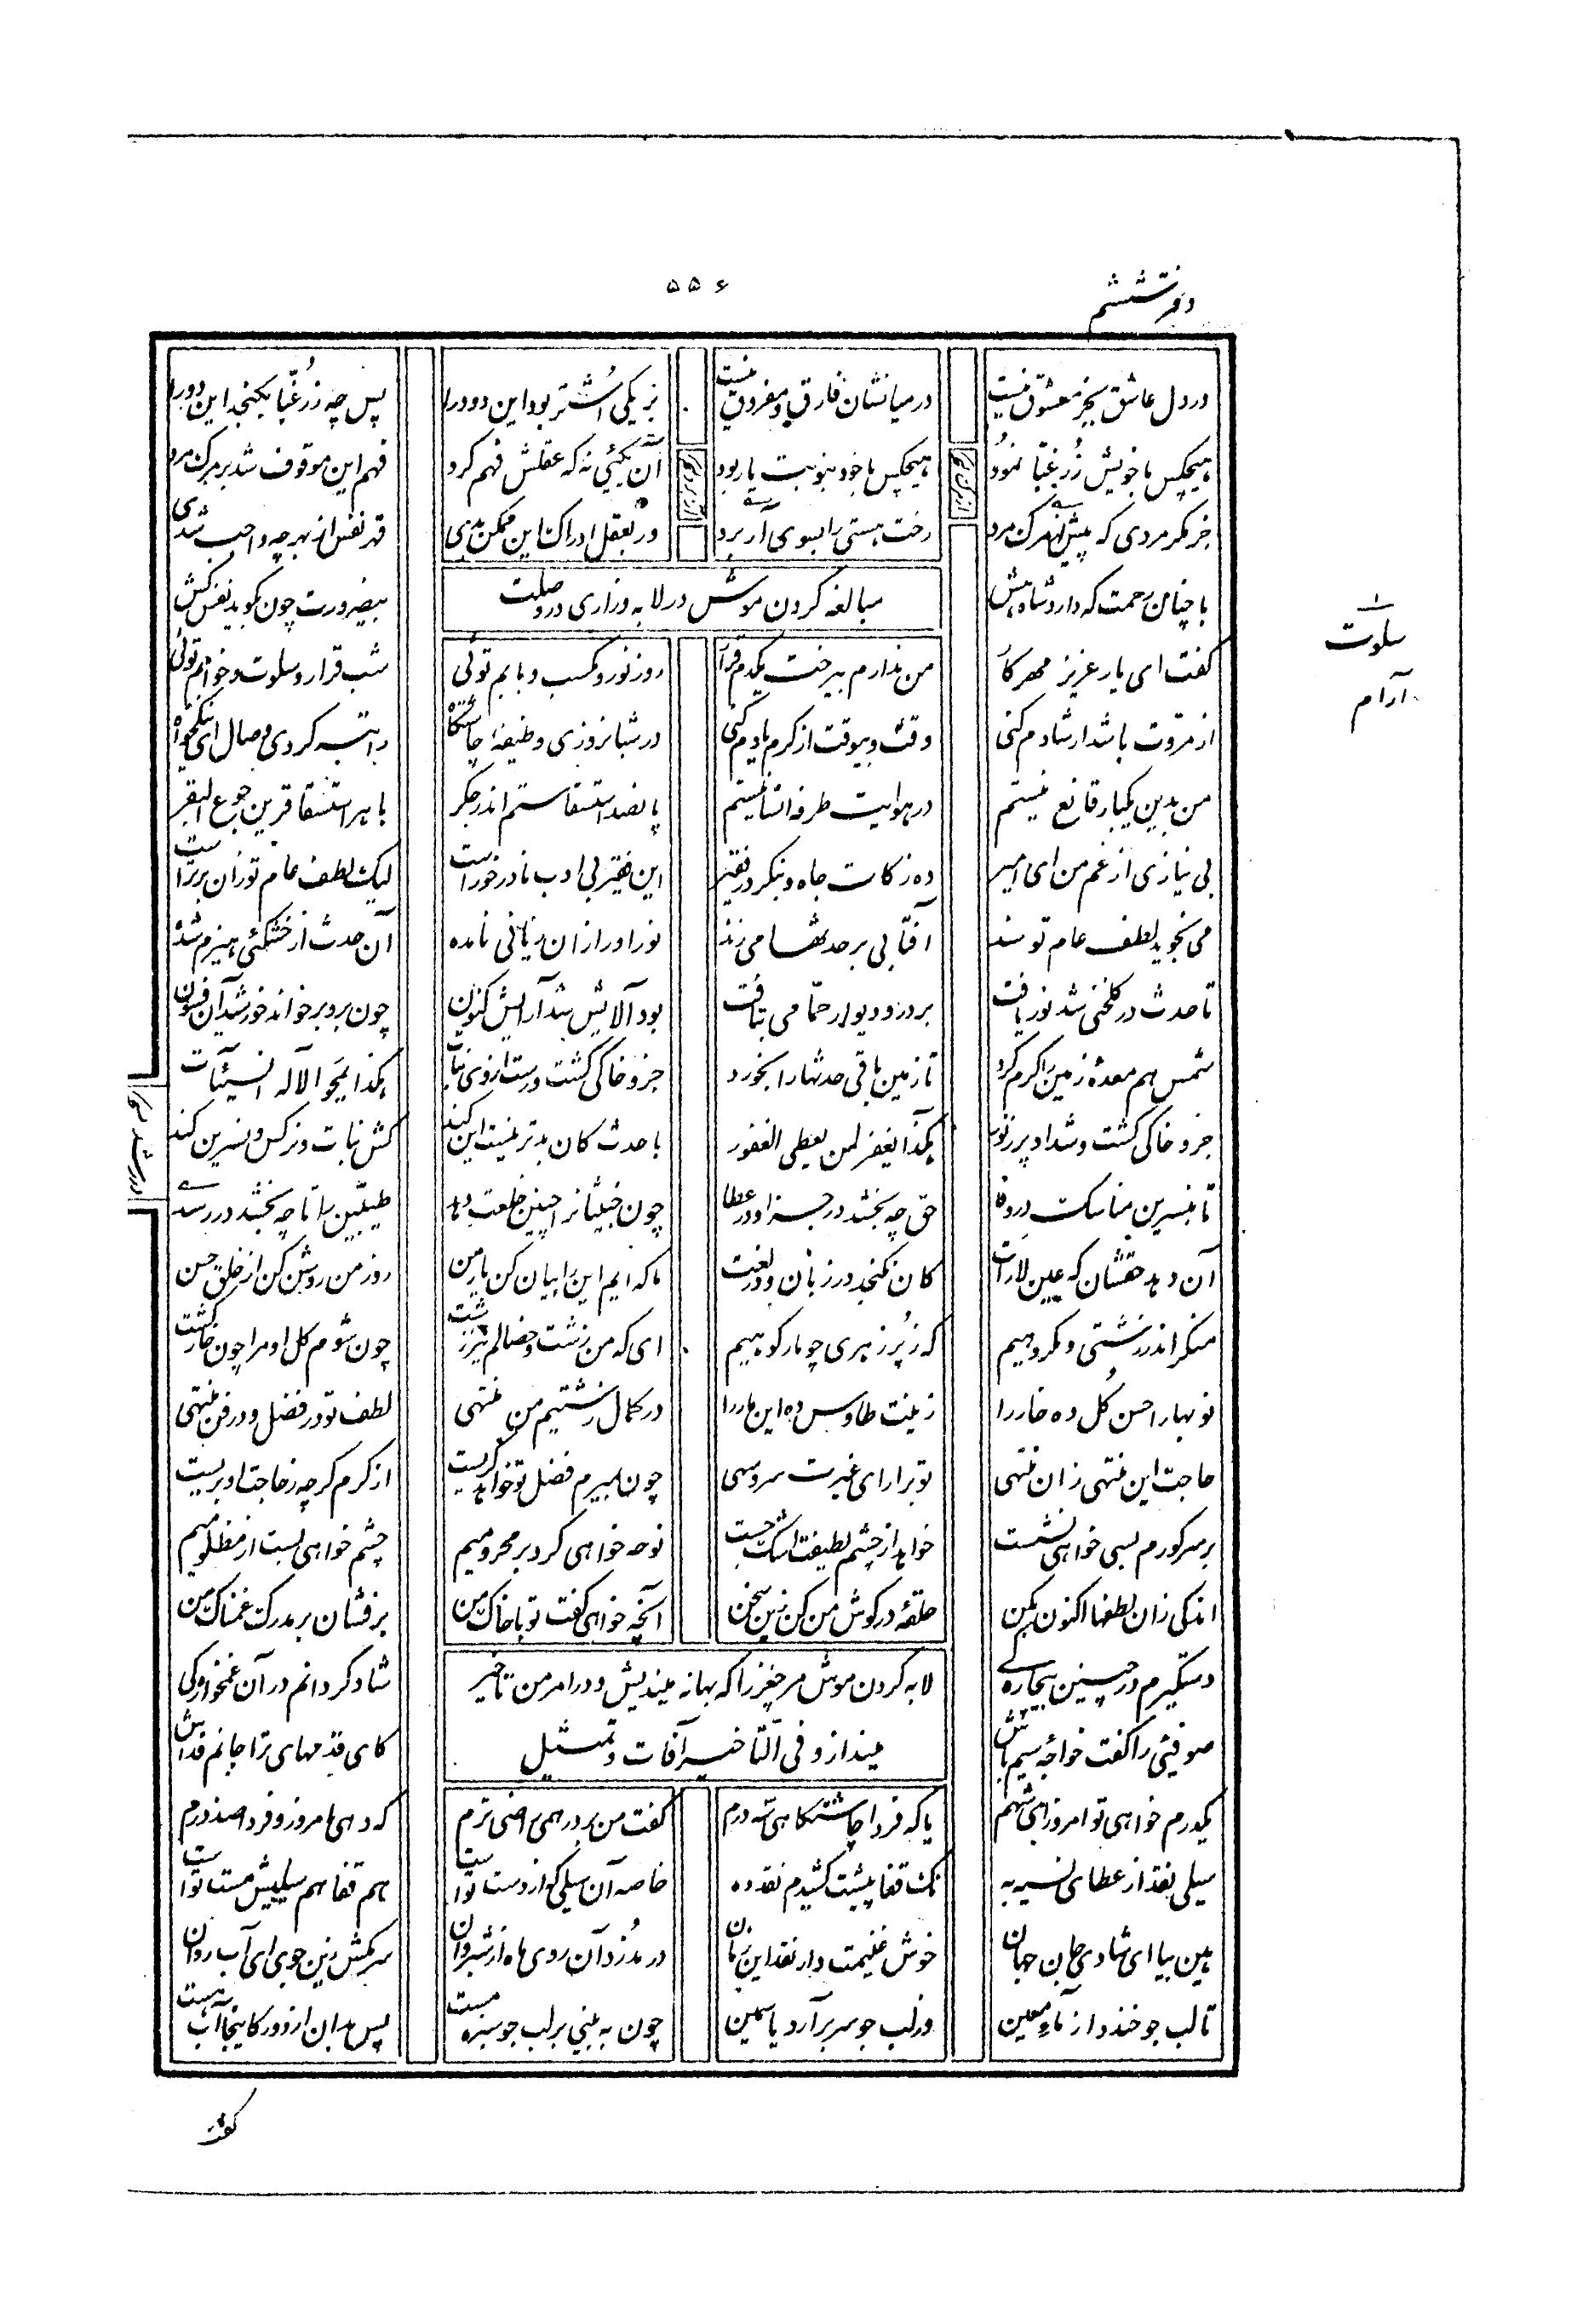 دفتر ششم
۵۵۶
در دل عاشق بجز معشوق نیست
در میانشان فارق و مفروق نیست
بر یکی اُشتر بود این دو درا
پس چه زُر غبّا بگنجد این دورا
هیچکس با خویش زُر غبّا نمود
هیچکس با خود بنوبت یار بود
آن یکئی نه که عقلش فهم کرد
فهم این موقوف شد بر مرک مرد
جز مکر مردی که پیش از مرک مرد
رخت هستی را بسوی آر برد
ور بعقل ادراک این ممکن بدی
قهر نفس از بهر چه واجب شدی
با چنان رحمت که دارد شاه هش
بیضرورت چون بکوید نفس کش
مبالغه کردن موش در لابه و زاری در وصلت
کفت ای یار عزیز مهر کار
من ندارم بیرخت یکدم قرار
روز نور و مکسب و تابم توئی
شب قرار و سلوت و خوابم توئی
از مروت باشد ار شادم کنی
وقت و بیوقت از کرم یادم کنی
در شبانروزی وظیفه چاشتگاه
راتبه کردی وصال ای نیکخواه
من بدین یکبار قانع نیستم
در هوایت طرفه انسانیستم
پانصد استسقاستم اندر جکر
با هر استسقا قرین جوع البقر
بی نیازی از غم من ای امیر
ده زکات جاه و بنکر در فقیر
این فقیر بی ادب نا درخور است
لیک لطف عام تو زان برتر است
می نجوید لطف عام تو سند
آفتابی بر حدثها می زند
نور او را زان زیانی نامده
آن حدث از خشکئی هیزم شده
تا حدث در کلخنی شد نور یافت
بر در و دیوار حمّامی بتافت
بود آلایش شد آرایش کنون
چون برو بر خواند خورشید آن فسون
شمس هم معدهٔ زمین را کرم کرد
تا زمین باقی حدثها را بخورد
جزو خاکی کشت و رست از وی نبات
هکذا یمحو الاله السیئات
جزو خاکی کشت و شد او پر ز نور
هکذا یغفر لمن یعطی الغفور
با حدث کان بدترینست این کند
کش نبات و نرکس و نسرین کند
تا بنسرین مناسک در وفا
حق چه بخشد در جزا و در عطا
چون خبیثانرا چنین خلعت دهد
طیبین را تا چه بخشد در رسد
آن دهد حقشان که عین لا رات
کان نکنجد در زبان و در لغت
ما که ایم این را بیان کن یار من
روز من روشن کن از خلق حسن
منکر اندر زشتی و مکروهیم
که ز پُر زهری چو مار کوهیم
ای که من زشت و خصالم نیز زشت
چون شوم کل او مرا چون خار کشت
نو بهارا حسن کُل ده خار را
زینت طاوس ده این مار را
در کمال زشتیم من منتهی
لطف تو در فضل و در فن منتهی
حاجت این منتهی زان منتهی
تو برار ای غیرت سرو سهی
چون بمیرم فضل تو خواهد کریست
از کرم کرچه ز حاجت او بریست
بر سر کورم بسی خواهی نشست
خواهد از چشم لطیفت اشک جست
نوحه خواهی کرد بر محرومیم
چشم خواهی بست از مظلومیم
اندکی زان لطفها اکنون بکن
حلقهٔ در کوش من کن زین سخن
آنچه خواهی کفت تو با خاک من
برفشان بر مدرک غمناک من
دستکیرم در چنین بیچارکی
شاد کردانم در آن غمخوارکی
لابه کردن موش مر چغز را که بهانه میندیش و در امر من تاخیر
مینداز و فی التاخیر آفات و تمثیل
صوفئی را کفت خواجهٔ سیم پاش
کای قدمهای ترا جانم فداش
یکدرم خواهی تو امروز ای شهم
یا که فردا چاشتگاهی سه درم
کفت من بر درهمی راضی ترم
که دهی امروز و فردا صد درم
سیلی نقد از عطای نسیه به
نک قفا پیشت کشیدم نقد ده
خاصه آن سیلی که از دست تو است
هم قفا هم سیلیش مست تو است
هین بیا ای شادی جان جهان
خوش غنیمت دار نقد این زمان
در مدُزد آن روی ماه از شبروان
سر مکش زین جوی ای آب روان
تا لب جو خندد از ماءِ معین
ور لب جو سر برآرد یاسمین
چون به بینی بر لب جو سبزه مست
پس بدان از دور کاینجا آب هست
۱
سلوت
آرام